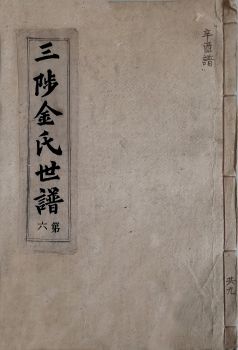 三陟金氏世譜
第六
辛酉譜
共九